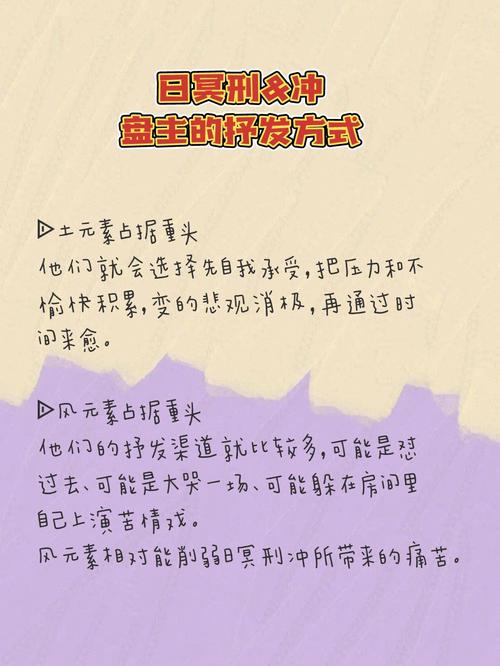 日冥刑&冲
盘主的抒发方式
土元素占据重头
他们就会选择先自我承受,把压力和不
愉快积累,变的悲观消极,再通过时
间来愈。
风元素占据重头
他们的抒发渠道就比较多,可能是怼
过去、可能是大哭一场、可能躲在房间里
自己上演苦情戏。
风元素相对能削弱日冥刑冲所带来的痛苦。